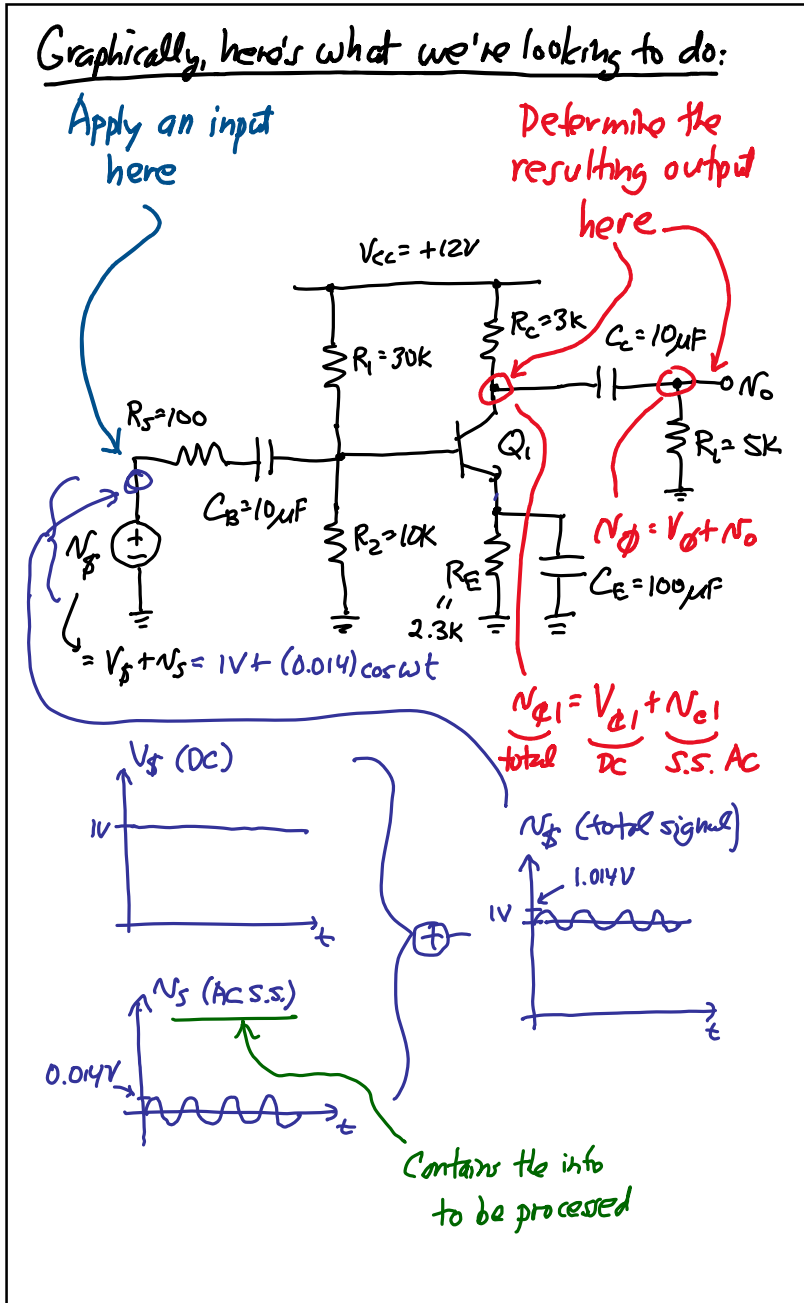 Graphically, here's what we're looking to do:
Apply an input
here
Determine the
resulting output
here
Vcc = +12V
R₁ = 30K
Rc = 3K
Cc = 10μF
vo
Rs = 100
CB = 10μF
Q₁
RL = 5K
R₂ = 10K
RE
"
2.3K
CE = 100μF
v$
+
−
vø = Vø + vo
= V$ + vs = 1V + (0.014) cos ωt
v¢1 = V¢1 + vc1
total DC S.S. AC
V$ (DC)
1V
t
v$ (total signal)
1.014V
1V
t
+
vs (AC s.s.)
0.014V
t
Contains the info
to be processed